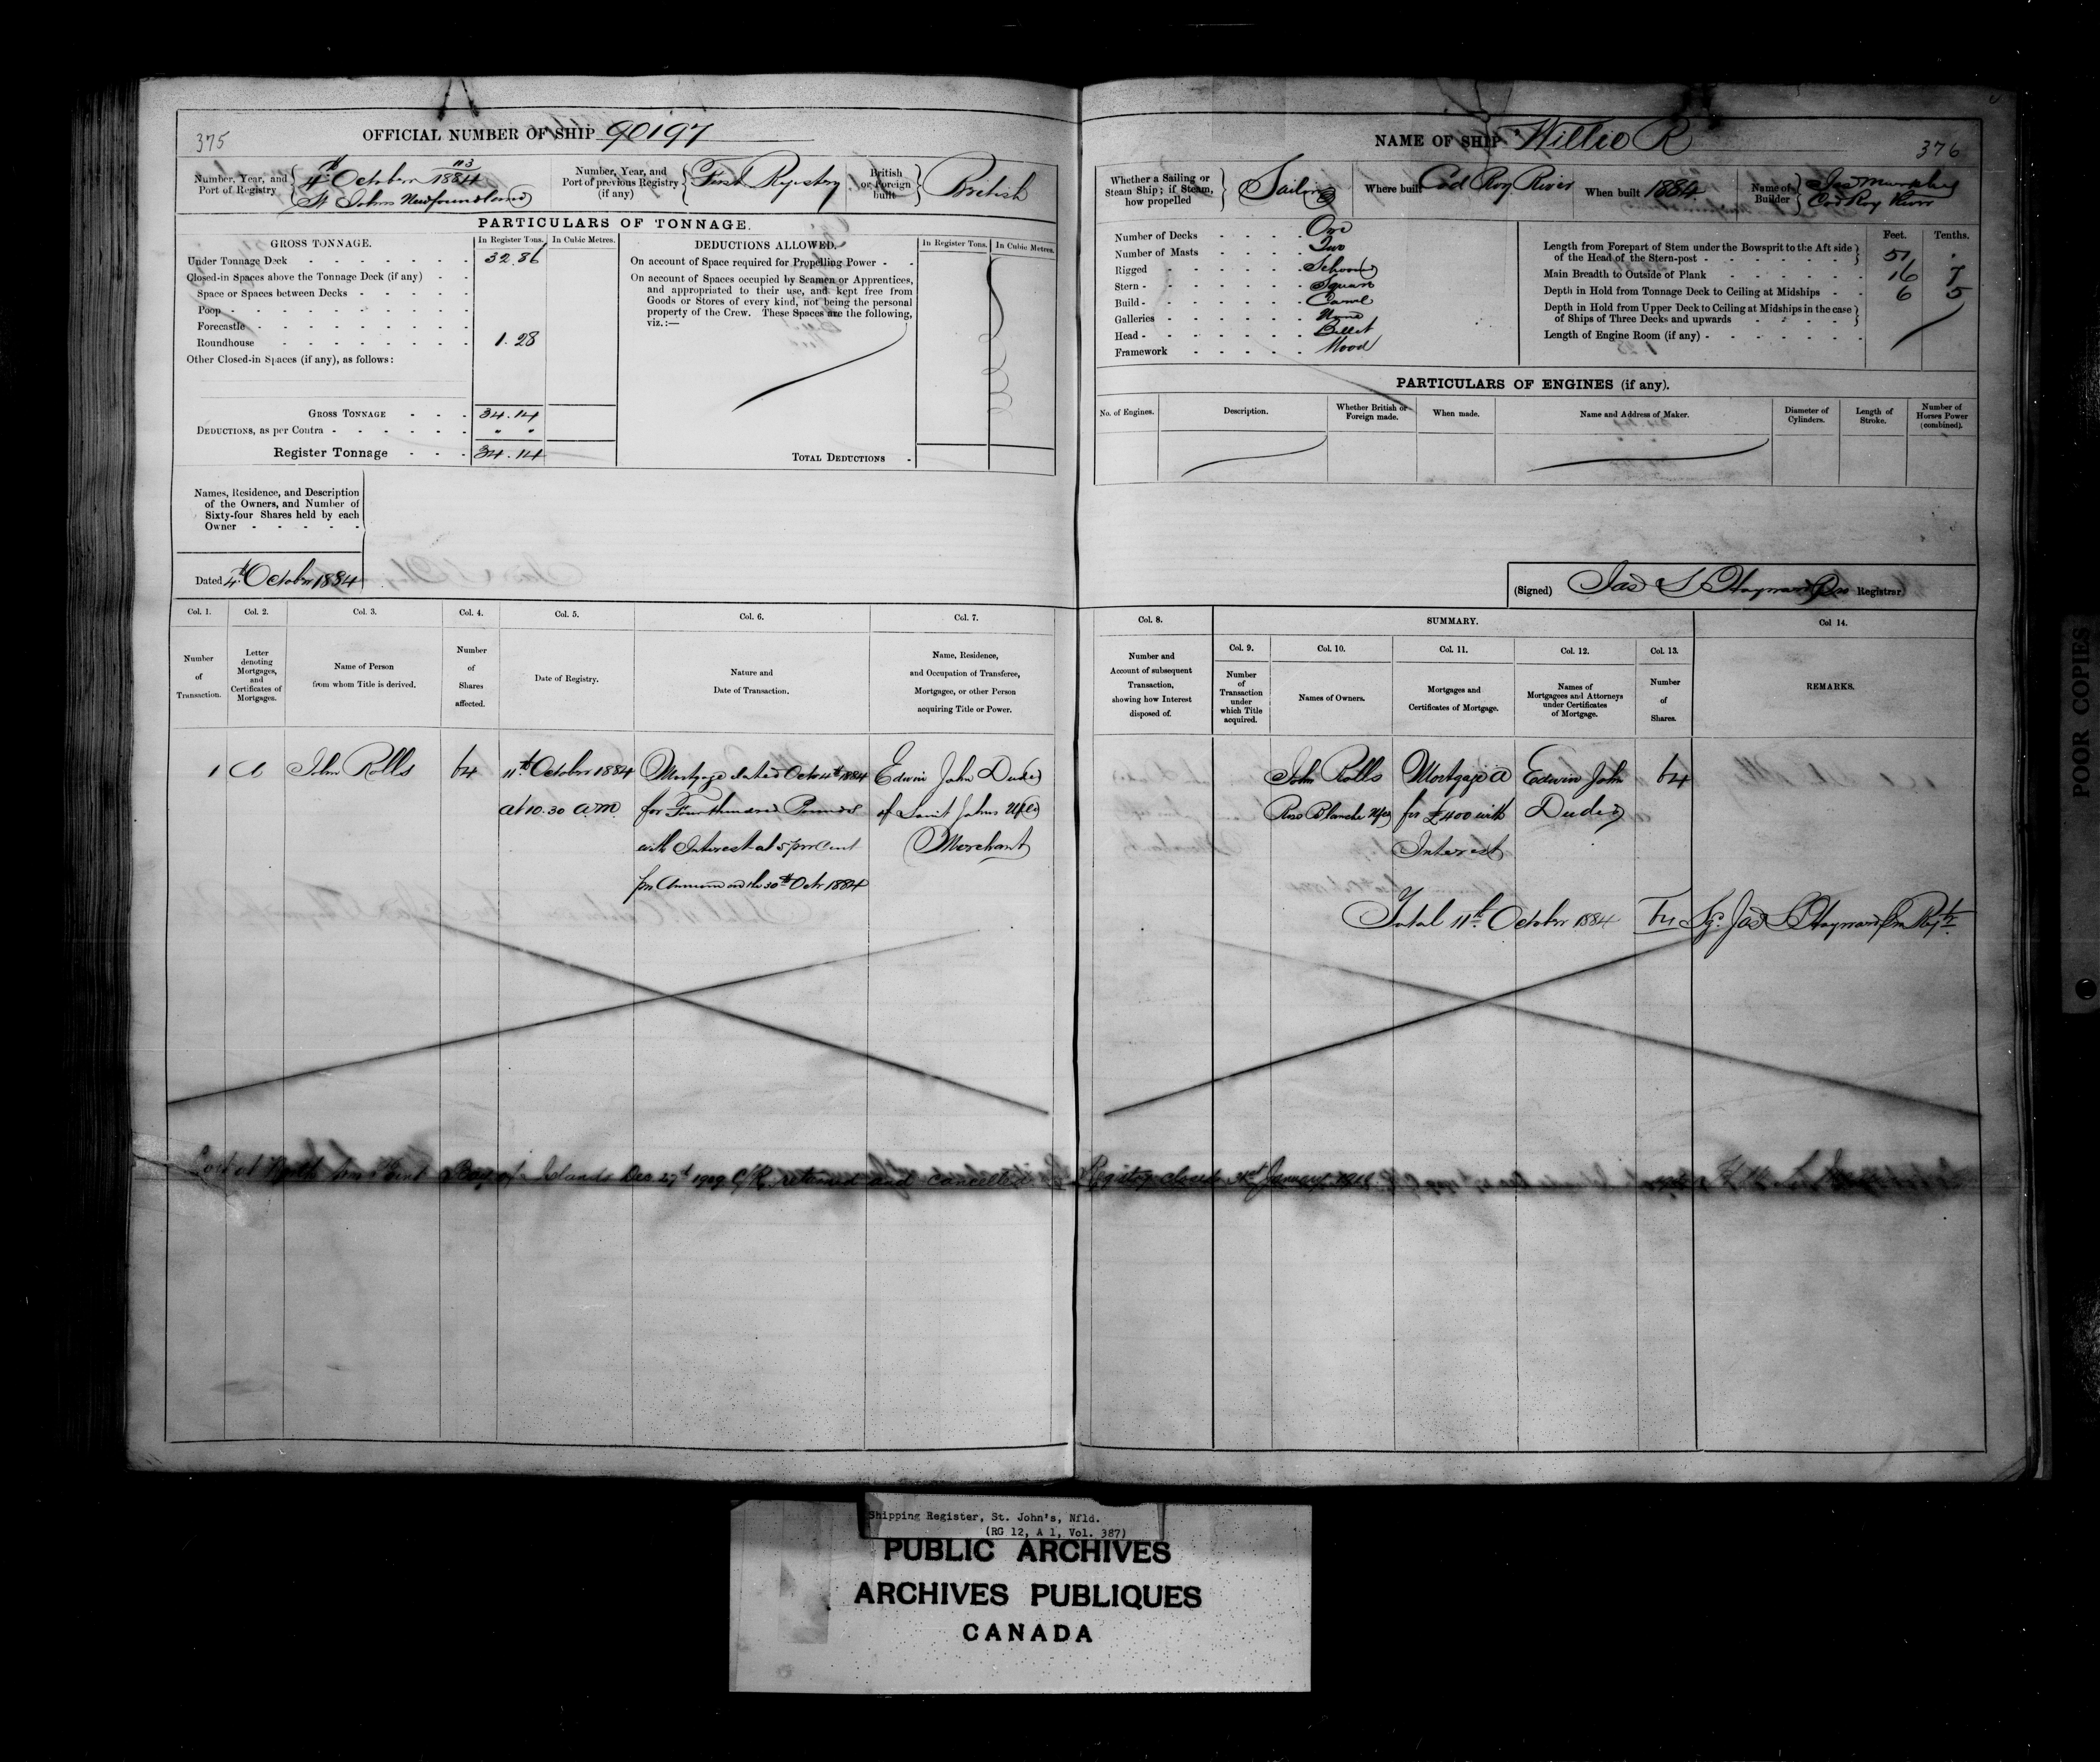 375
OFFICIAL NUMBER OF SHIP 90197
Number, Year, and Port of Registry
113
4th October 1884
St Johns Newfoundland
Number, Year, and Port of previous Registry (if any)
First Registry
British or Foreign built
British
PARTICULARS OF TONNAGE.
GROSS TONNAGE.
In Register Tons.
In Cubic Metres.
Under Tonnage Deck 32.86
Closed-in Spaces above the Tonnage Deck (if any)
Space or Spaces between Decks
Poop
Forecastle
Roundhouse 1.28
Other Closed-in Spaces (if any), as follows:
GROSS TONNAGE 34.14
DEDUCTIONS, as per Contra " "
Register Tonnage 34.14
DEDUCTIONS ALLOWED.
In Register Tons.
In Cubic Metres.
On account of Space required for Propelling Power
On account of Spaces occupied by Seamen or Apprentices,
and appropriated to their use, and kept free from
Goods or Stores of every kind, not being the personal
property of the Crew. These Spaces are the following,
viz.:—
TOTAL DEDUCTIONS
Names, Residence, and Description
of the Owners, and Number of
Sixty-four Shares held by each
Owner
Dated 4th October 1884
Col. 1.
Number of Transaction.
Col. 2.
Letter denoting Mortgages, and Certificates of Mortgages.
Col. 3.
Name of Person from whom Title is derived.
Col. 4.
Number of Shares affected.
Col. 5.
Date of Registry.
Col. 6.
Nature and Date of Transaction.
Col. 7.
Name, Residence, and Occupation of Transferee, Mortgagee, or other Person acquiring Title or Power.
1
A
John Rolls
64
11th October 1884
at 10.30 a.m.
Mortgage dated Octr 4th 1884
for Four hundred Pounds
with Interest at 5 per cent
per Annum on the 30th Octr 1884
Edwin John Duder
of Saint Johns Nfld
Merchant
NAME OF SHIP Willie R
376
Whether a Sailing or Steam Ship; if Steam, how propelled
Sailing
Where built Cod Roy River
When built 1884
Name of Builder
Jas Murphy
Cod Roy River
Number of Decks One
Number of Masts Two
Rigged Schooner
Stern Square
Build Carvel
Galleries None
Head Billet
Framework Wood
Feet. Tenths.
Length from Forepart of Stem under the Bowsprit to the Aft side
of the Head of the Stern-post 57 .
Main Breadth to Outside of Plank 16 7
Depth in Hold from Tonnage Deck to Ceiling at Midships 6 5
Depth in Hold from Upper Deck to Ceiling at Midships in the case
of Ships of Three Decks and upwards
Length of Engine Room (if any)
PARTICULARS OF ENGINES (if any).
No. of Engines.
Description.
Whether British or Foreign made.
When made.
Name and Address of Maker.
Diameter of Cylinders.
Length of Stroke.
Number of Horses Power (combined).
(Signed) Jas S Hayward Registrar
Col. 8.
Number and Account of subsequent Transaction, showing how Interest disposed of.
SUMMARY.
Col. 9.
Number of Transaction under which Title acquired.
Col. 10.
Names of Owners.
Col. 11.
Mortgages and Certificates of Mortgage.
Col. 12.
Names of Mortgagees and Attorneys under Certificates of Mortgage.
Col. 13.
Number of Shares.
Col 14.
REMARKS.
John Rolls
Rose Blanche Nfld
Mortgage A
for £400 with
Interest
Edwin John
Duder
64
Total 11th October 1884 64 Sg. Jas S Hayward
Lost at North Bay of Islands Dec 27th 1909 C/R returned and cancelled Registry closed January
Shipping Register, St. John's, Nfld.
(RG 12, A 1, Vol. 387)
PUBLIC ARCHIVES
ARCHIVES PUBLIQUES
CANADA
POOR COPIES